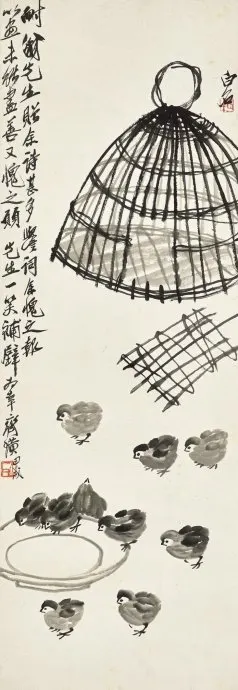 白石
耐翁先生貽余詩甚多譽詞余愧之報
以畫未能盡善又愧之願先生一笑補壁 齊璜